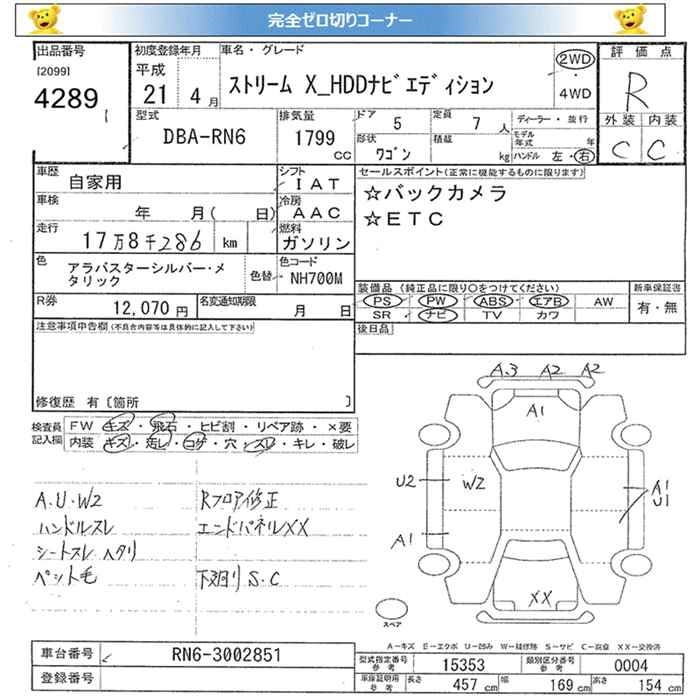 完全ゼロ切りコーナー
出品番号
[2099]
4289
初度登録年月
平成
21 4月
車名・グレード
ストリーム X_HDDナビエディション
2WD
・
4WD
評価点
R
外装 内装
C C
型式
DBA-RN6
排気量
1799
cc
ドア 5
形状
ワゴン
定員 7人
積載 kg
ディーラー・並行
モデル年式 年
ハンドル 左・右
車歴
自家用
シフト
IAT
車検
年 月( 日)
冷房
AAC
走行
17万8千286 km
燃料
ガソリン
色
アラバスターシルバー・メタリック
色替
色コード
NH700M
R券
12,070円
名変通知期限
月 日
セールスポイント(正常に機能するものに限ります)
☆バックカメラ
☆ETC
装備品(純正品に限り○をつけてください)
PS PW ABS エアB AW
SR ナビ TV カワ
新車保証書
有・無
後日品
注意事項申告欄(不具合内容等は具体的に記入して下さい)
修復歴 有〔箇所 〕
検査員記入欄
FW キズ・飛石・ヒビ割・リペア跡・×要
内装 キズ・汚レ・コゲ・穴・スレ・キレ・破レ
A.U.W2
ハンドルスレ
シートスレ ヘタリ
ペット毛
Rフロア修正
エンドパネルXX
下廻り S.C
A3 A2 A2
A1
U2
W2
A1
U1
A1
XX
スペア
A-キズ E-エクボ U-凹み W-補修跡 S-サビ C-腐食 XX-交換済
車台番号
RN6-3002851
登録番号
型式指定番号
参考
15353
類別区分番号
参考
0004
車庫証明用
参考
長さ 457 cm
幅 169 cm
高さ 154 cm